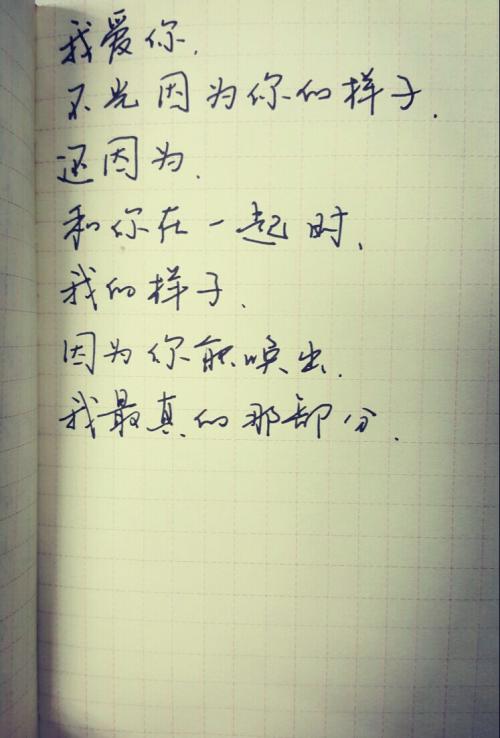 我爱你.
不光因为你的样子.
还因为.
和你在一起时.
我的样子.
因为你能唤出.
我最真的那部分.